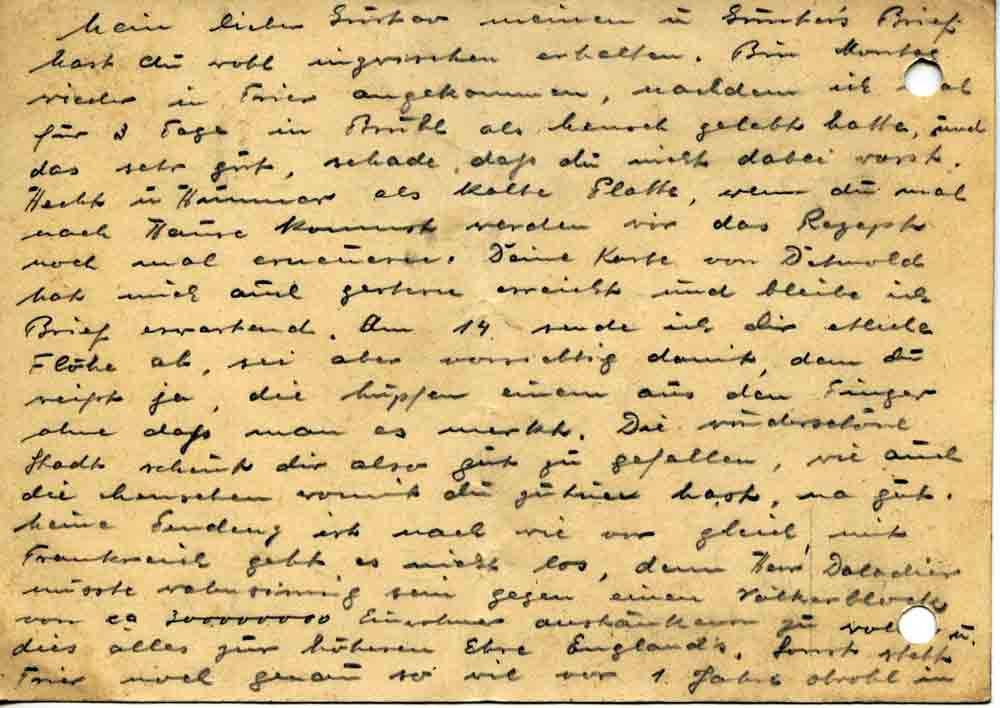 Mein lieber Gustav meinen u Günther's Brief
hast du wohl inzwischen erhalten. Bin Montag
wieder in Trier angekommen, nachdem ich mal
für 3 Tage in Brühl als Mensch gelebt hatte, und
das sehr gut, schade, daß du nicht dabei warst.
Hecht u Hummer als kalte Platte, wenn du mal
nach Hause kommst werden wir das Rezept
noch mal erneuern. Deine Karte von Detmold
hat mich auch gestern erreicht und bleibe ich
Brief erwartend. Am 14. sende ich dir etliche
Flöhe ab, sei aber vorsichtig damit, denn du
weißt ja, die hüpfen einem aus den Finger
ohne daß man es merkt. Die wunderschöne
Stadt scheint dir also gut zu gefallen, wie auch
die Menschen womit du zutuen hast, na gut.
Meine Tendenz ist nach wie vor gleich, mit
Frankreich geht es nicht los, denn Herr Daladier
müsste wahnsinnig sein gegen einen Völkerblock
von ca 300000000 Einwohner zu u.
dies alles zur höheren Ehre England's. Sonst steht
Trier noch genau so wie vor 1. Jahre obwohl in